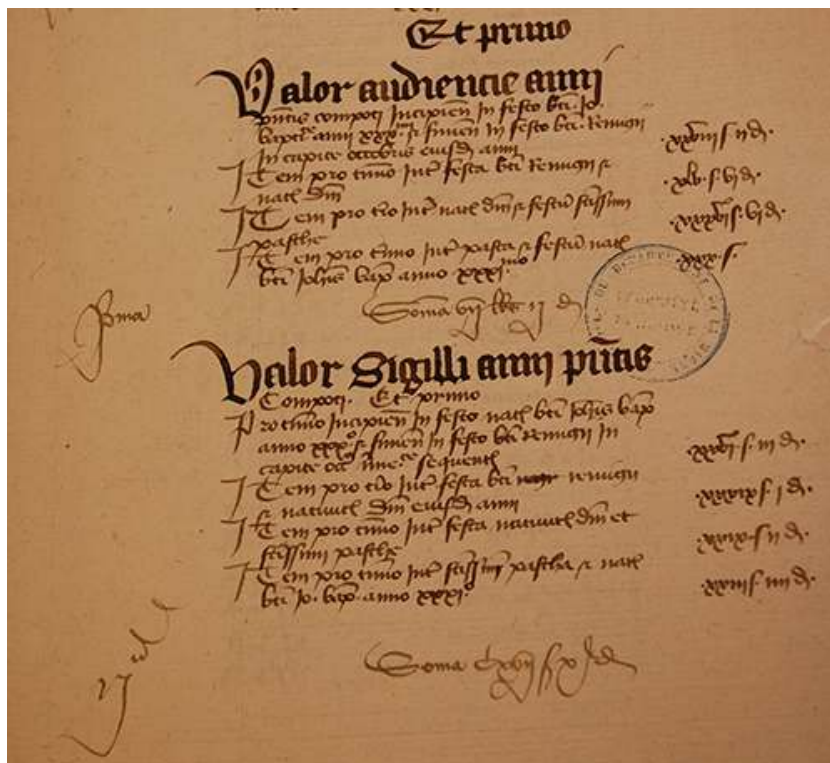 Et primo
Valor audiencie anni
pntis compoti Incipien In festo bti Jo.
bapte anni xxx & finien In festo bti Remigii
In capite octobris eiusd anni .xxviii s ii d.
Item pro tmino Int festa bti Remigii &
nath dni .xlv. s. vi d.
Item pro tio Int nath dni & festu sctissimi
pasche vi d.
Item pro tmino Int pasca & festu nath
bti Johis bap anno xxxi mo .xxx. s.
Soma vii ii d
pma
Valor Sigilli anni pntis
Compoti. Et primo
Pro tmino Incipien In festo nath bti Johis bap
anno xxx o & finien In festo bti Remigii In
capite oct sequenti s. iii d.
Item pro tio Int festa bti remigii
& nativith dni eiusd anni .xxxix s i d.
Item pro tmino Int festa nativith dni et
sctissimi pasche .xxix. s ii d.
Item pro tmino Int sctissimi pascha & nath
bti Jo. bap. anno xxxi o .xxiii s iiii d.
Soma cxvii s x d